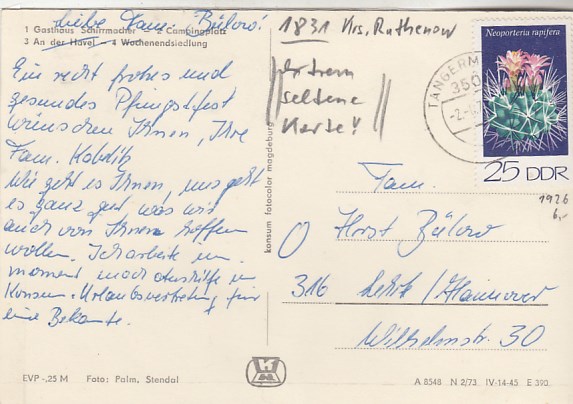 Liebe Fam. Bülow!
1 Gasthaus Schirrmacher 2 Campingplatz
3 An der Havel 4 Wochenendsiedlung
Ein recht frohes und
gesundes Pfingstfest
wünschen Ihnen, Ihre
Fam.
Wie geht es Ihnen, uns geht
es ganz gut was wir
auch von Ihnen hoffen
wollen. Ich arbeite im
moment noch Aushilfe im
Konsum - Urlaubsvertretung für
eine Bekannte.
EVP -,25 M Foto: Palm, Stendal
konsum fotocolor magdeburg
1831 Krs. Rathenow
extrem
seltene
Karte!
TANGERM
350
-2.-6.7
Neoporteria rapifera
25 DDR
1926
6,-
Fam.
Horst Bülow
316 Lehrte/Hannover
Wilhelmstr. 30
A 8548 N 2/73 IV-14-45 E 390